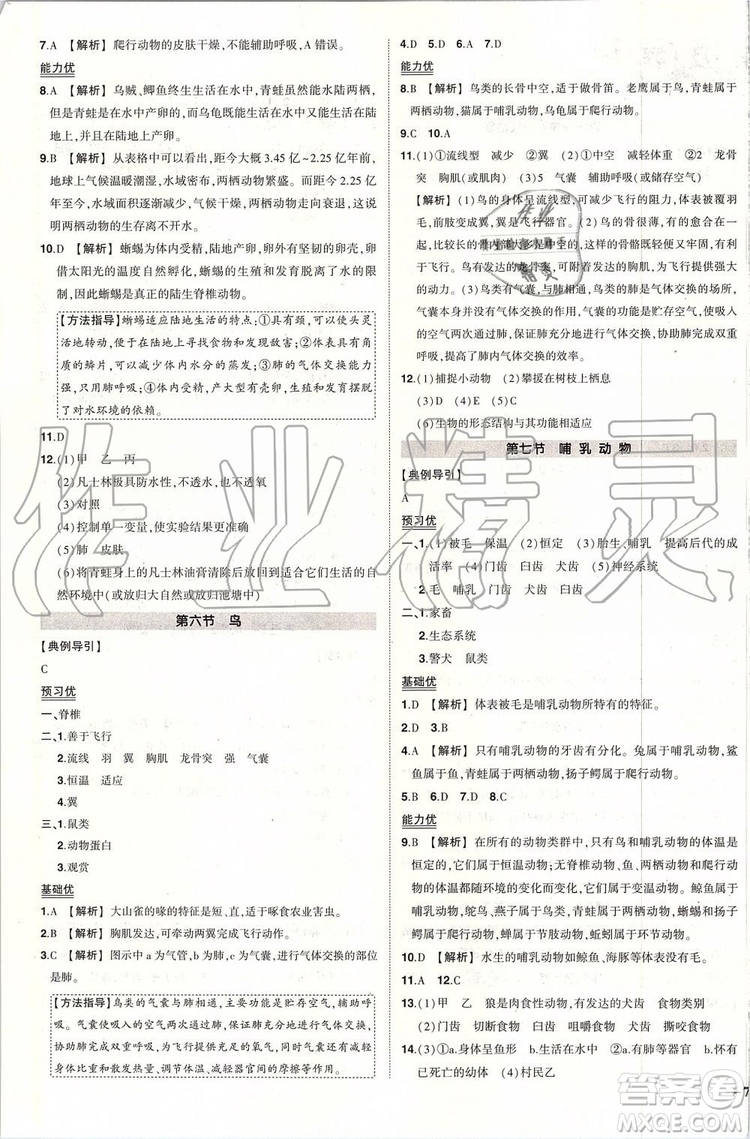 7.A 【解析】爬行动物的皮肤干燥,不能辅助呼吸,A错误。
能力优
8.A 【解析】乌贼、鲫鱼终生生活在水中,青蛙能水陆两栖,但是青蛙是在水中产卵的,而乌龟虽生活在水中,但却在陆地上产卵。
9.B 【解析】从表格中可以看出,距今大约3.45亿~2.25亿年前,
地球上气候温暖潮湿,水域密布,两栖动物繁盛;距今2.25亿
年至今,水域面积逐渐减少,气候干燥,两栖动物衰退。这
说明两栖动物的生存离不开水。
10.D 【解析】蜥蜴体内受精,陆地产卵,卵外有坚韧的卵壳,卵
借太阳光的温度自然孵化,蜥蜴的生殖和发育摆脱了对水环境的限制,因此蜥蜴是真正的陆生脊椎动物。
【方法指导】蜥蜴适应陆地生活的特点:①具有颈,可以使头灵
活地转动,便于在陆地上寻找食物和躲避敌害;②体表具有角
质的鳞片,可以减少体内水分的蒸发;③肺的气体交换能力
强,只用肺呼吸;④体内受精,产大型有壳卵,生殖摆脱了
对水环境的依赖。
11.D
12.(1)甲 乙 丙
(2)凡士林极具防水性,不透水,也不透气
(3)对照
(4)控制单一变量,使实验结果更准确
(5)肺 皮肤
(6)将青蛙身上的凡士林油膏清除后放回到它们生活的自
然环境中(或放归大自然或放归池塘中)
第六节 鸟
【典例导引】
C
预习优
一、脊椎
二、1.善于飞行
2.流线 羽 翼 胸肌 龙骨突 强 气囊
3.恒温 适应
4.翼
三、1.鼠类
2.动物蛋白
3.观赏
基础优
1.A 【解析】大山雀的喙的特征是短、直,适于啄食农业害虫。
2.A 【解析】胸肌发达,可牵动两翼完成飞行动作。
3.C 【解析】图示中a为气管,b为肺,c为气囊,进行气体交换的部位
是肺。
【方法指导】鸟类的气囊与肺相通,主要功能是贮存空气,辅助呼
吸。气囊使吸入的空气两次通过肺,保证肺充分地进行气体交换,
提高并供给充足的氧气,同时气囊还有减轻身体比重、散发热量、
减轻器官间的摩擦等作用。
4.D 5.D 6.A 7.D
能力优
8.B 【解析】鸟类的长骨中空,适于做骨笛。老鹰属于鸟,青蛙属于
两栖动物,猫属于哺乳动物,乌龟属于爬行动物。
9.C 10.A
11.(1)①流线型 减少 ②翼 (2)①中空 减轻体重 ②龙骨
突 胸肌(或肌肉) (3)5 气囊 辅助呼吸(或储存空气)
【解析】(1)鸟的身体呈流线型,可减少飞行的阻力。体表被覆羽
毛,前肢变成翼,翼是飞行器官。(2)鸟的骨很薄,有的骨愈合,
比较长的骨大多是中空的,这样的骨骼既轻便又牢固,有利
于飞行。鸟有发达的龙骨突,可附着发达的胸肌,提供强大的
动力。(3)鸟的体内有气囊,与肺相通,气体交换的场所是肺,
气囊本身并没有气体交换的作用,气囊的功能是贮存空气,使吸
入的空气两次通过肺,保证肺充分地进行气体交换,协助肺完成呼吸动
作,提高了肺内气体交换的效率。
12.(1)捕捉小动物 (2)攀援在树枝上栖息
(3)D (4)E (5)C
(6)生物的形态结构与其功能相适应
第七节 哺乳动物
【典例导引】
A
预习优
一、1.(1)被毛 保温 (2)恒定 (3)胎生 哺乳 提高后代的成
活率 (4)门齿 臼齿 犬齿 (5)神经系统
2.毛 哺乳 门齿 犬齿 臼齿
二、1.家畜
2.生态系统
3.警犬 鼠类
基础优
1.D 【解析】体表被毛是哺乳动物所特有的特征。
2.D 3.B
4.A 【解析】只有哺乳动物的牙齿有分化。兔属于哺乳动物,鲨
鱼属于鱼,青蛙属于两栖动物,扬子鳄属于爬行动物。
5.B 6.D 7.D 8.C
能力优
9.B 【解析】在所有的动物类群中,只有鸟和哺乳动物的体温是
恒定的,它们属于恒温动物;无脊椎动物、鱼、两栖动物和爬行
动物的体温都随环境的变化而变化,属于变温动物。鲸鱼属于
哺乳动物,鸵鸟、燕子属于鸟类,青蛙属于两栖动物,蜥蜴和扬子
鳄属于爬行动物,蝉属于节肢动物,蚯蚓属于环节动物。
10.D 【解析】水生的哺乳动物如鲸鱼、海豚等体内有肺。
11.A 12.C
13.(1)甲 乙 狼是肉食性动物,有发达的犬齿 食物类别
(2)门齿 切断食物 臼齿 咀嚼食物 犬齿 撕咬食物
14.(3)①a.身体呈鱼形 b.生活在水中 ②a.有肺 b.怀有
已死亡的幼体 (4)村民乙
作业精灵
答案圈
MXQE.COM